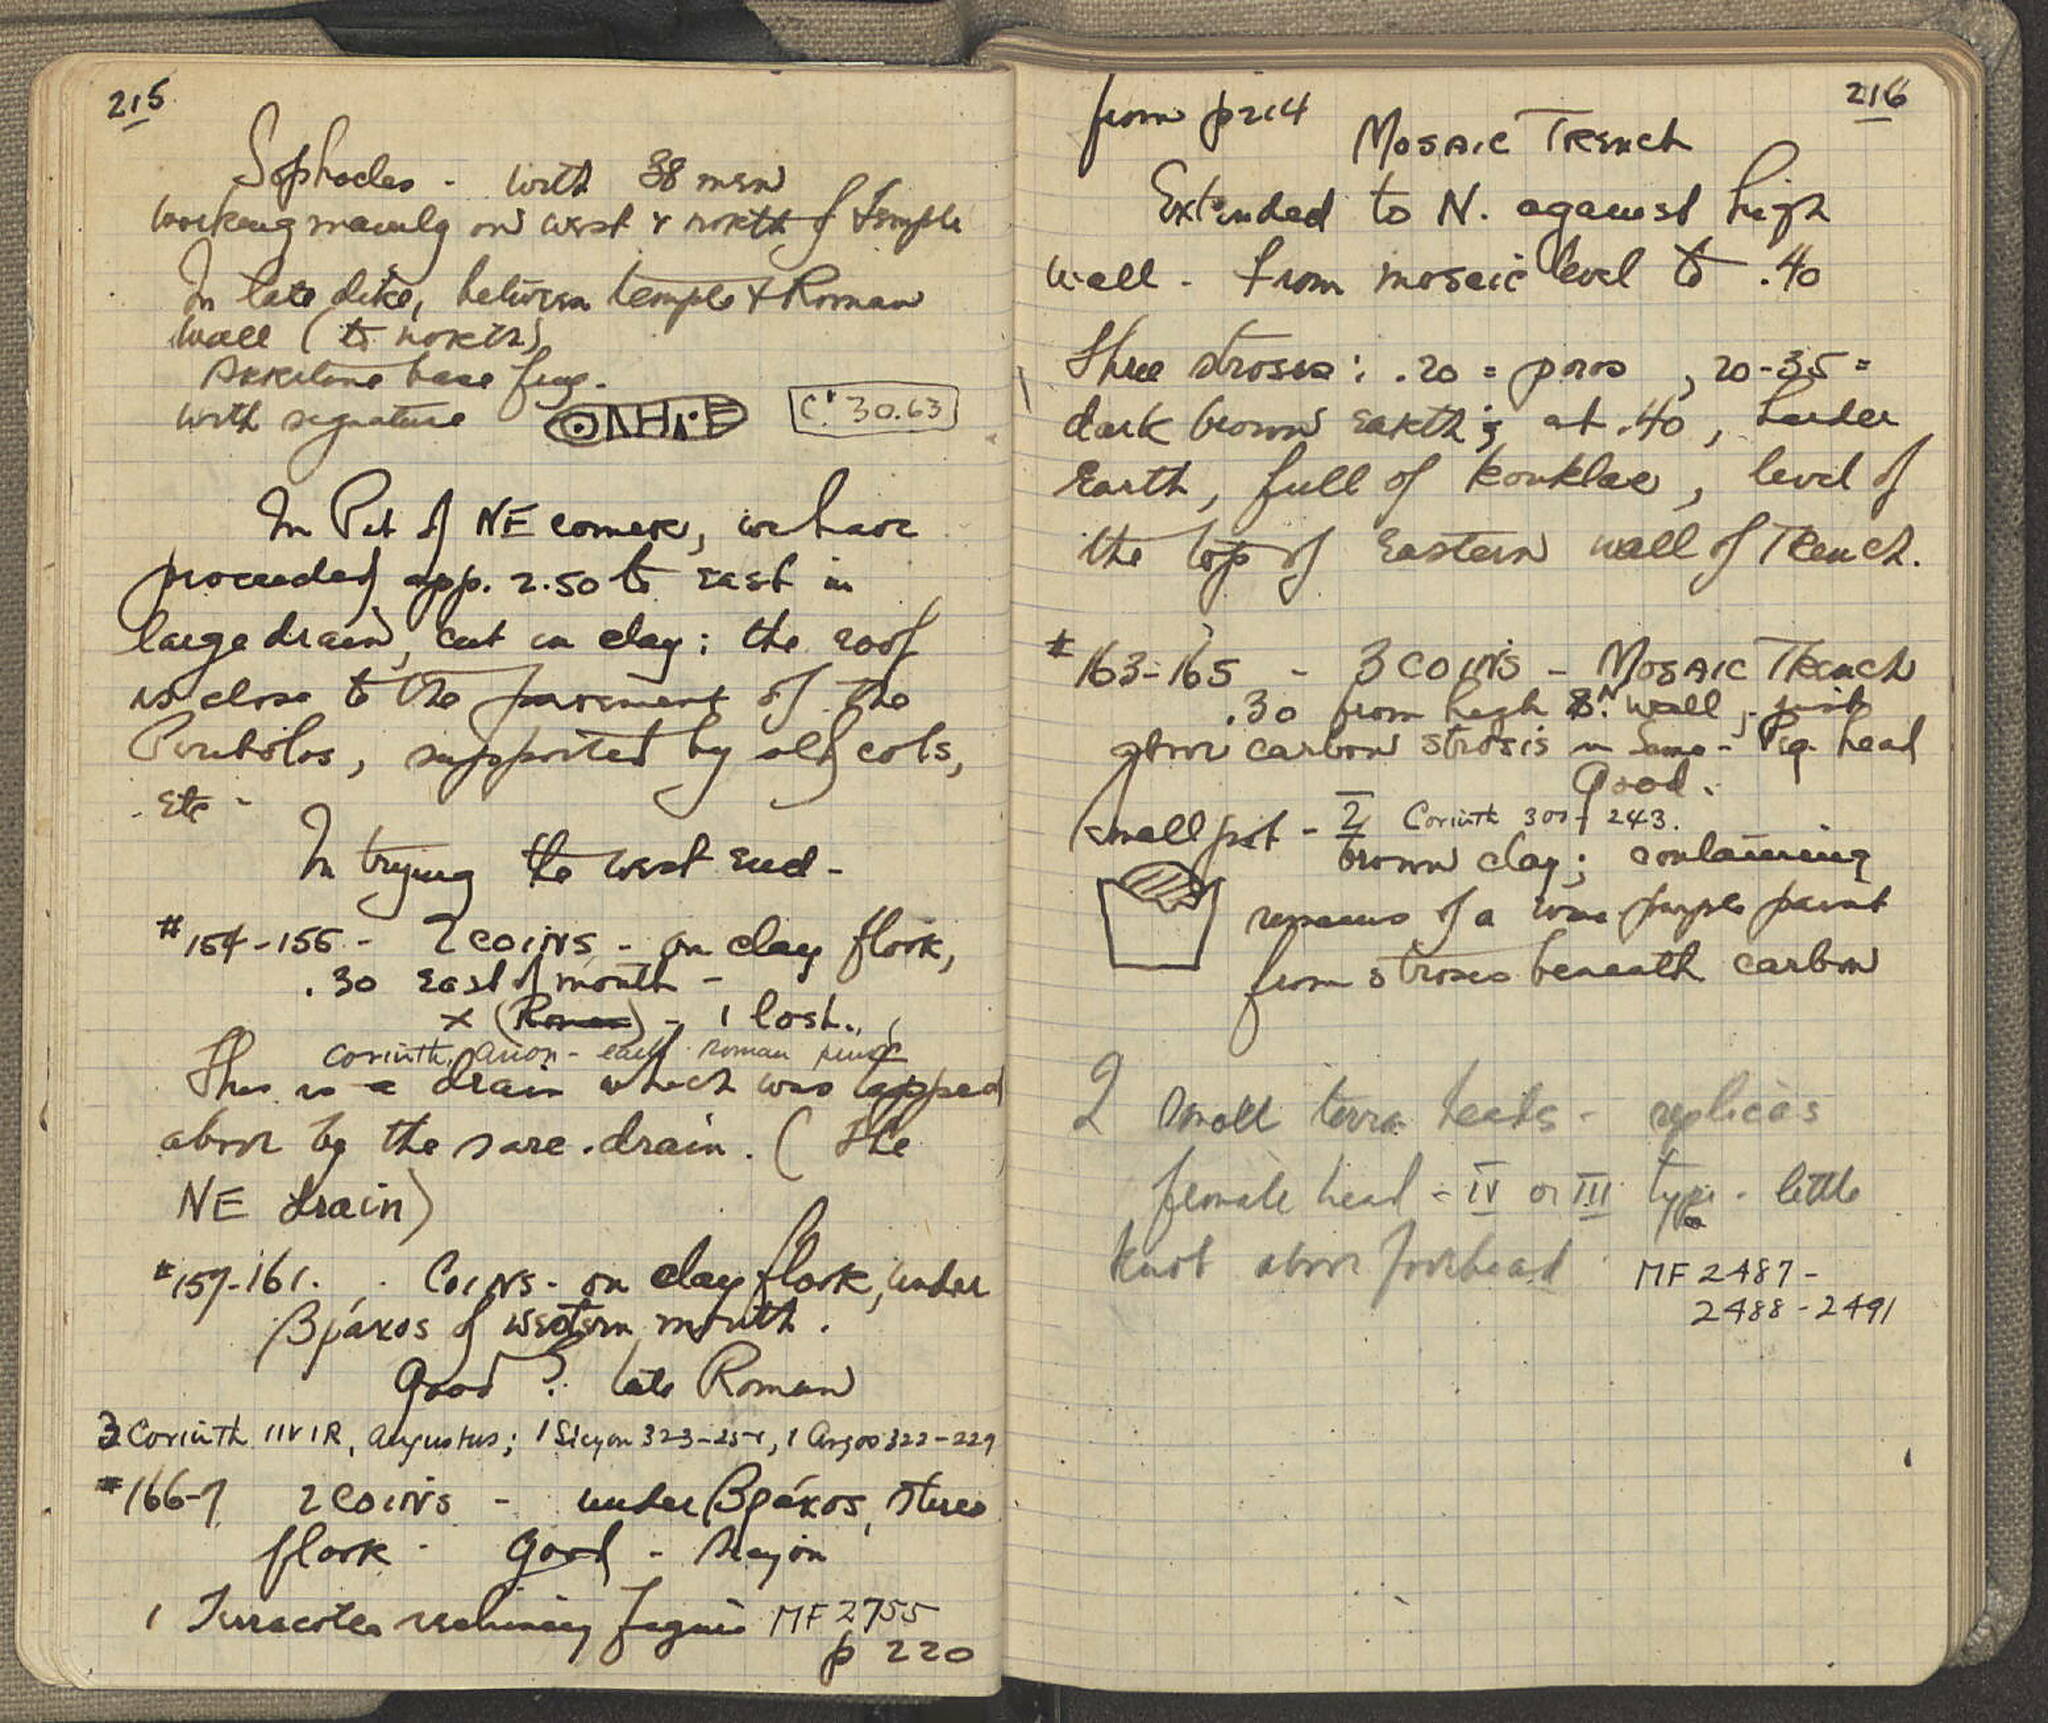 215
Sophocles - with 38 men
working mainly on west & north of temple
In late dike, between temple & Roman
wall (to north)
Arretine base frag.
with signature ONHCE C' 30.63
In Pit of NE corner, we have
proceeded app. 2.50 to east in
large drain, cut in clay: the roof
is close to the pavement of the
Peribolos, supported by old cols,
etc -
In trying the west end -
#154-156 - 2 coins - on clay floor,
.30 east of mouth -
x (Roman) - 1 lost.
Corinth. anon - early Roman
This is a drain which was tapped
above by the same drain. (The
NE drain)
#157-161. - Coins - on clay floor, under
Βράχος of western mouth.
Good? late Roman
3 Corinth IIVIR, Augustus; 1 Sicyon 323-251, 1 Argos 322-229
#166-7 2 coins - under Βράχος, stereo
floor - Good - Sicyon
1 Terracotta reclining figure MF 2755
p 220
from p 214
216
Mosaic Trench
Extended to N. against high
wall - from mosaic level to .40
Three stroses: .20 = poros, 20-35 =
dark brown earth; at .40, harder
earth, full of kouklae, level of
the top of Eastern wall of Trench.
#163-165 - 3 coins - Mosaic Trench
.30 from high N. wall, just
above carbon strosis in same - Pig. head
Good.
Small pot - 2 Corinth 300-243.
brown clay; containing
remains of a wine purple paint
from stroses beneath carbon
2 small terra heads - replicas
female head - IV or III type - little
knot above forehead
MF 2487-
2488-2491